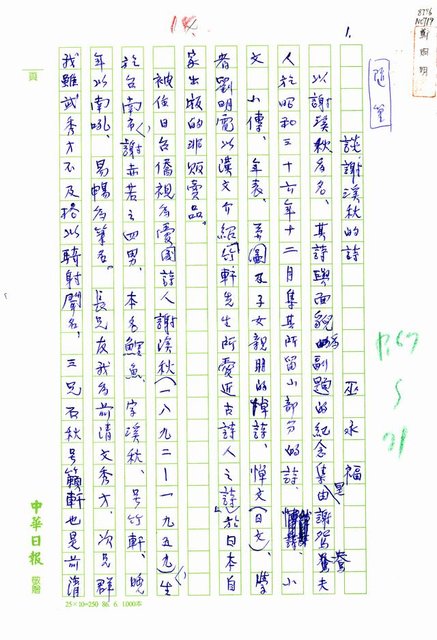 1.
隨筆
談謝溪秋的詩
巫永福
以謝溪秋為名、其詩與面貌為副題的紀念集是由謝鴛鴦夫
人於昭和三十六年十二月集其所留小部分的詩、小
文、小傳、年表、弄圖及子女親朋的悼詩、悼文(日文)、學
者劉明電以漢文介紹「竹軒先生所愛近古詩人之詩」於日本自
家出版的非販賣品。
被住日台僑視為愛國詩人謝溪秋(一八九二|一九五九)生
於台南市、謝赤若之四男、本名鯉魚、字溪秋、號竹軒、晚
年以南吼、易暢為筆名。長兄友我為前清文秀才、次兄群
我雖武秀才不及格以騎射聞名、三兄石秋號籟軒也是前清
頁
中華日報
敬贈
25×10=250 86. 6. 1,000本
P.67